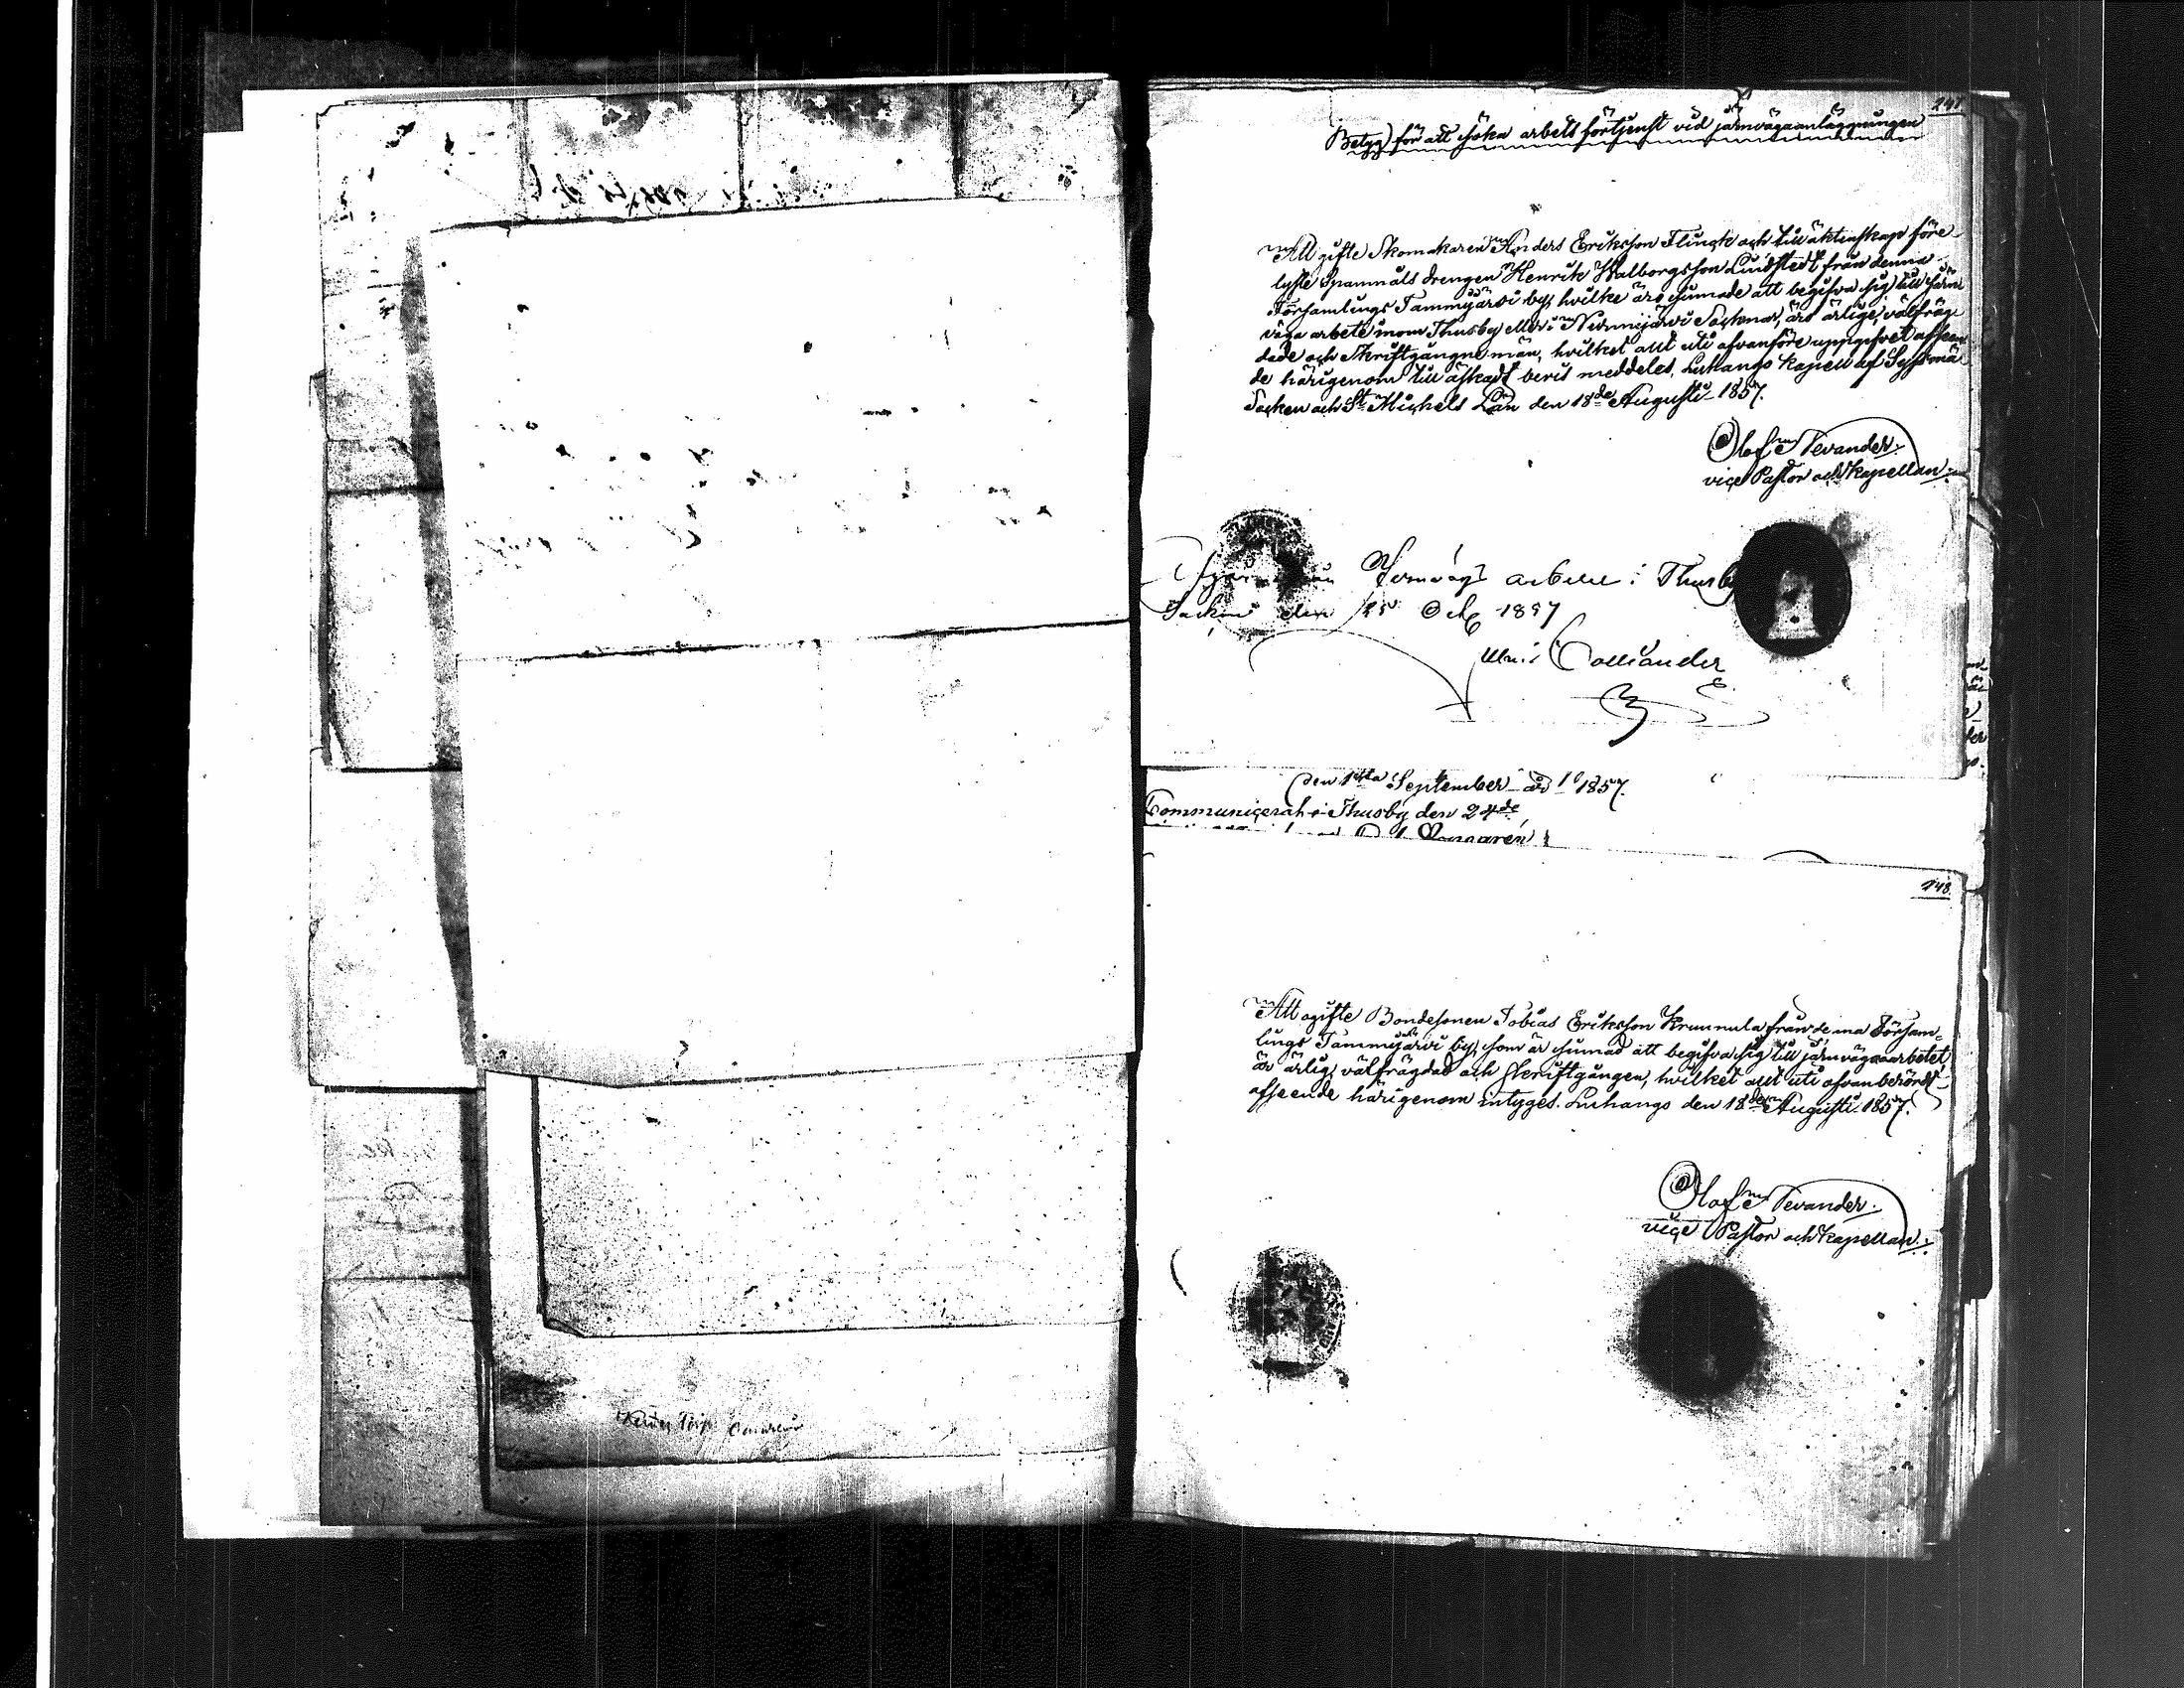 141
Betyg för att söka arbets förtjenst vid järnvägaanläggningen
Att gifte Skomakaren Anders Eriksson Flinck och till äktenskap före-
lyste Spannmåls drengen Henrik Walborgsson Lindstedt från denna
Församlings Tammijärvi by, hvilke äro sinnade att begifva sig till järn
väga arbete inom Thusby eller i Nurmijärvi Socknar, äro ärlige, välfräg-
dade och Skriftgångne män, hvilket allt uti ofvanföre uppgifvet afseen
de härigenom till äskadt bevis meddeles, Luhango Kapell af Sysmä
Socken och St Michels Län den 18de Augusti 1857.
Olof Tevander.
vice Pastor och Kapellan.
Jernvägs arbete i Thusby
Socken den 25 Oct 1857
Callander
Den 1sta September 1857.
Communicerat i Thusby den 24de
148.
Att ogifte Bondesonen Tobias Eriksson Krunnula från denna Försam-
lings Tammijärvi by, som är sinnad att begifva sig till järnvägaarbetet,
är ärlig, välfrägdad och skriftgången, hvilket allt uti ofvanberördt
afseende härigenom intyges. Luhango den 18de Augusti 1857.
Olof Tevander.
vice Pastor och Kapellan.